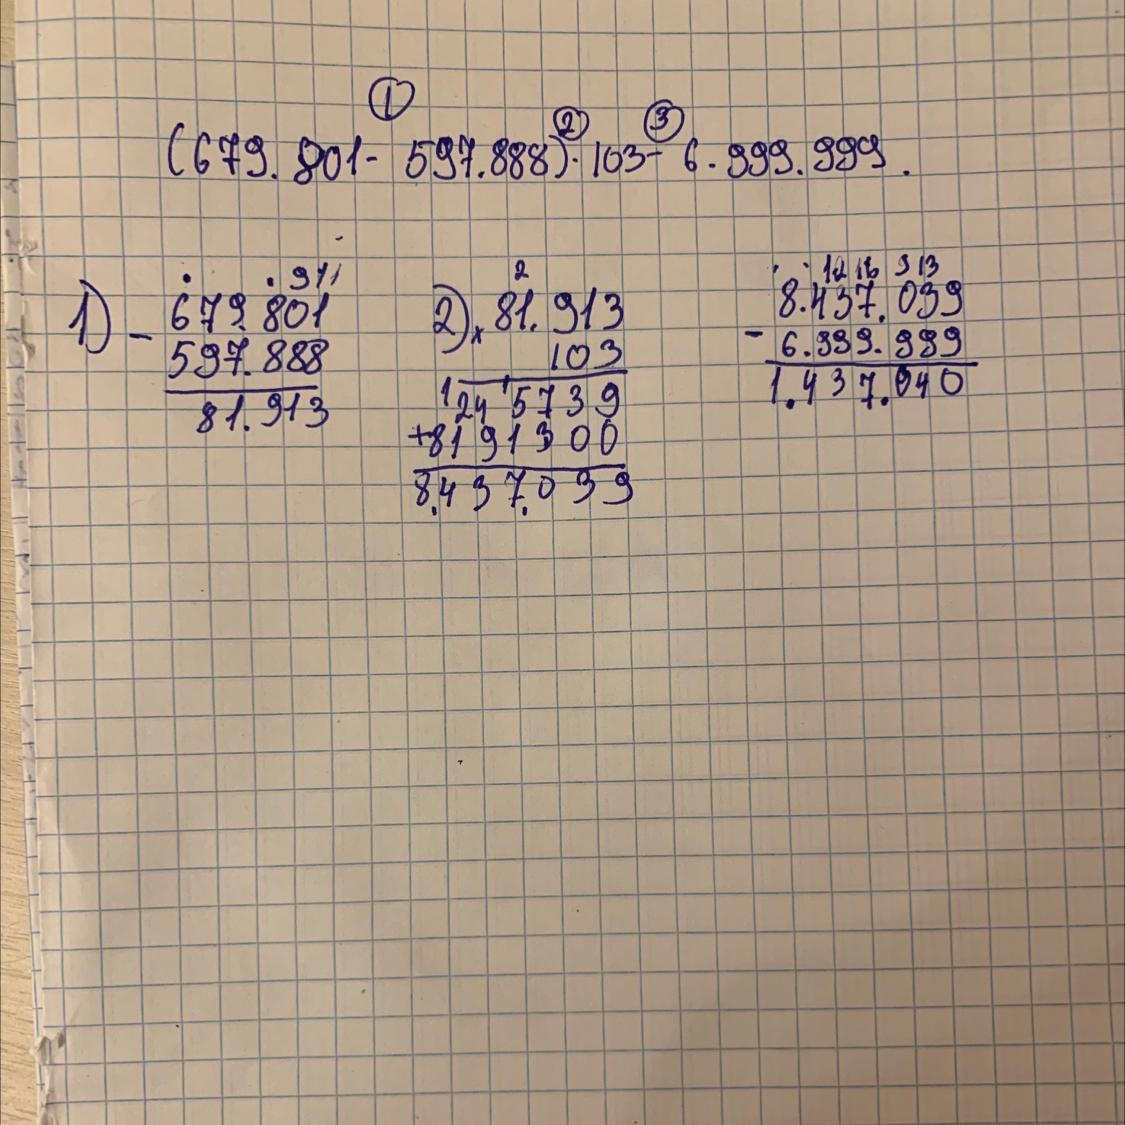 ① ② ③
(679.801- 597.888)·103- 6.999.999.
1)
. . 9 11
- 679.801
597.888
81.913
2)
2
x 81.913
103
1 1
245739
+8191300
8.437.039
. . 12 16 9 13
8.437.039
- 6.999.999
1.437.040